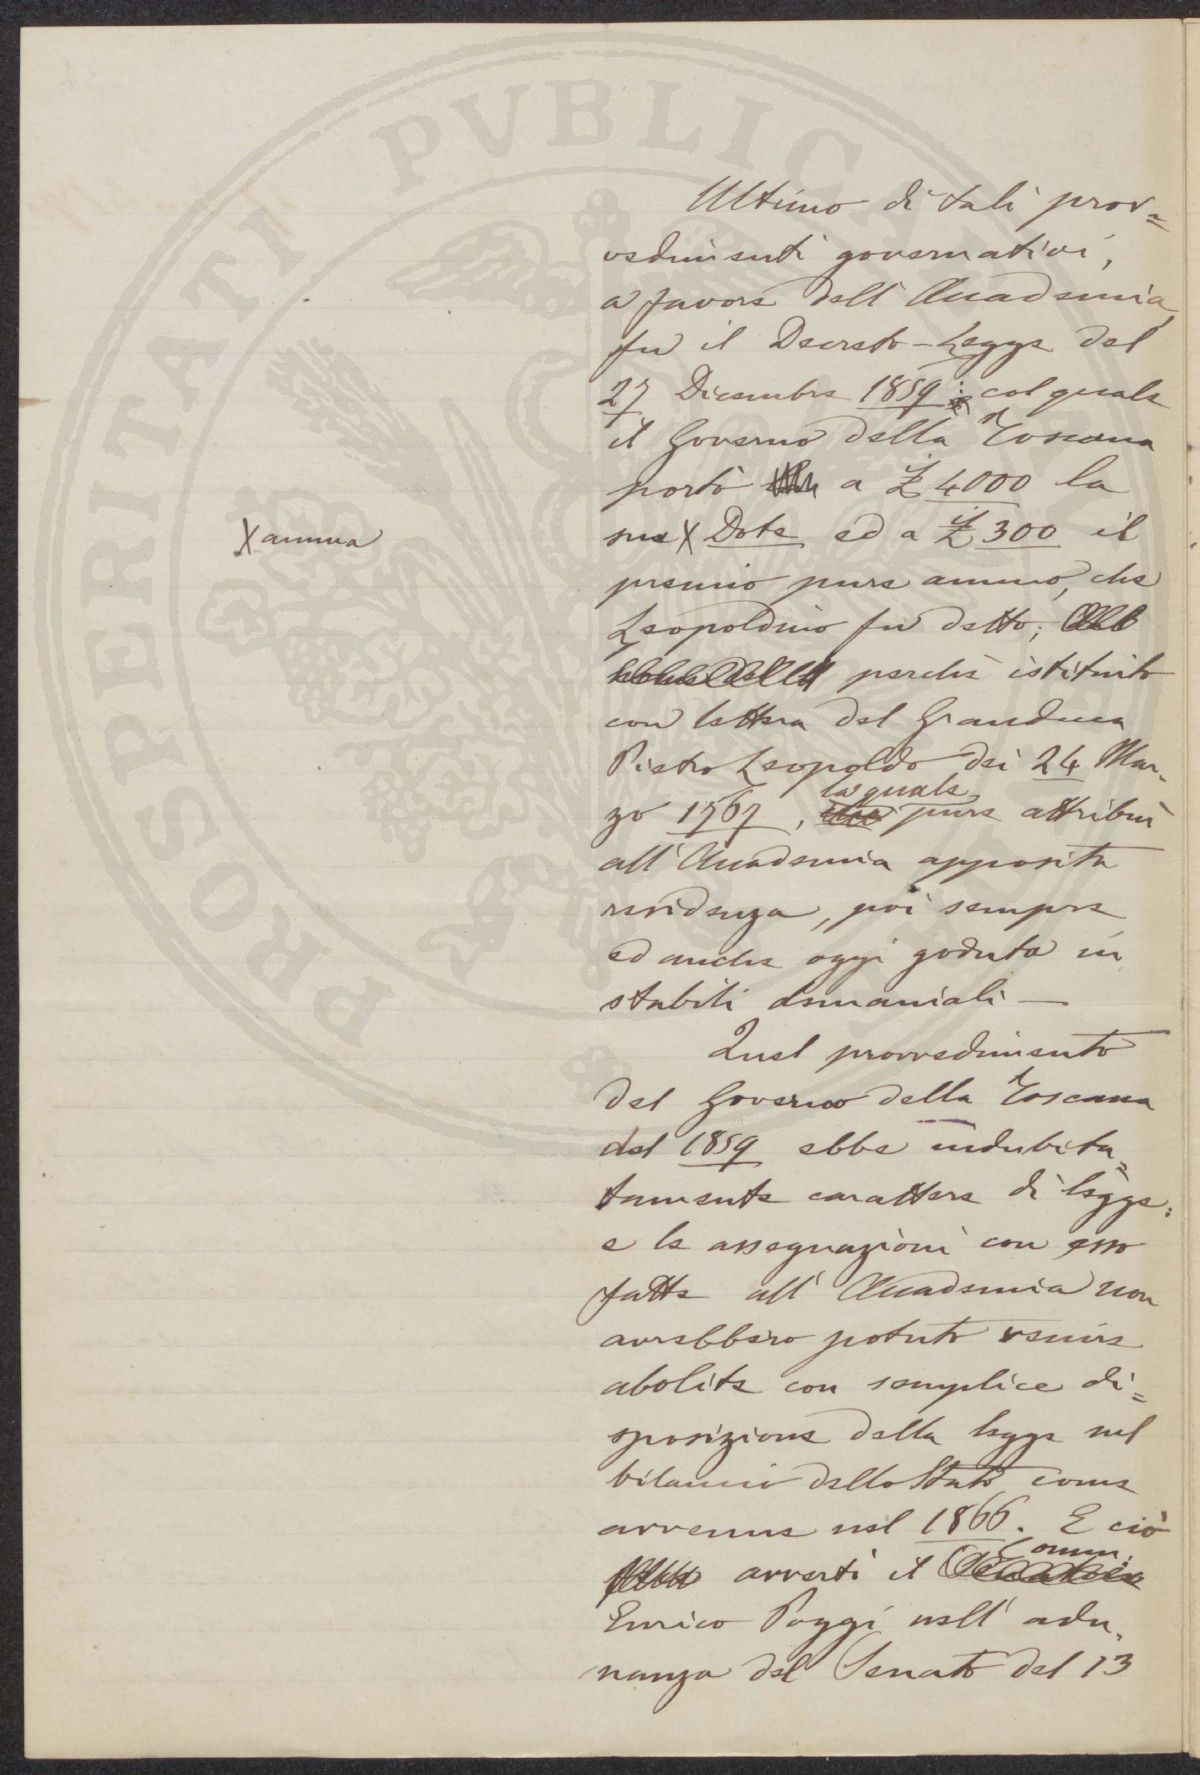 PROSPERITATI PVBLICAE
Ultimo di tali prov=
vedimenti governativi,
a favore dell' Accademia,
fu il Decreto-Legge del
27 Dicembre 1859; col quale
il Governo della Toscana
portò a £ 4000 la
sua X Dote ed a £ 300 il
X annua
premio pure annuo, che
Leopoldino fu detto;
perchè istituito
con lettera del Granduca
Pietro Leopoldo dei 24 Mar-
zo 1767, la quale pure attribuì
all' Accademia apposita
residenza, poi sempre
ed anche oggi goduta in
stabili demaniali —
Quel provvedimento
del Governo della Toscana
del 1859 ebbe indubita=
tamente carattere di legge:
e le assegnazioni con esso
fatte all' Accademia non
avrebbero potuto venire
abolite con semplice di=
sposizione della legge sul
bilancio dello Stato come
avvenne nel 1866. E ciò
avvertì il Comm:
Enrico Poggi nell' adu=
nanza del Senato del 13